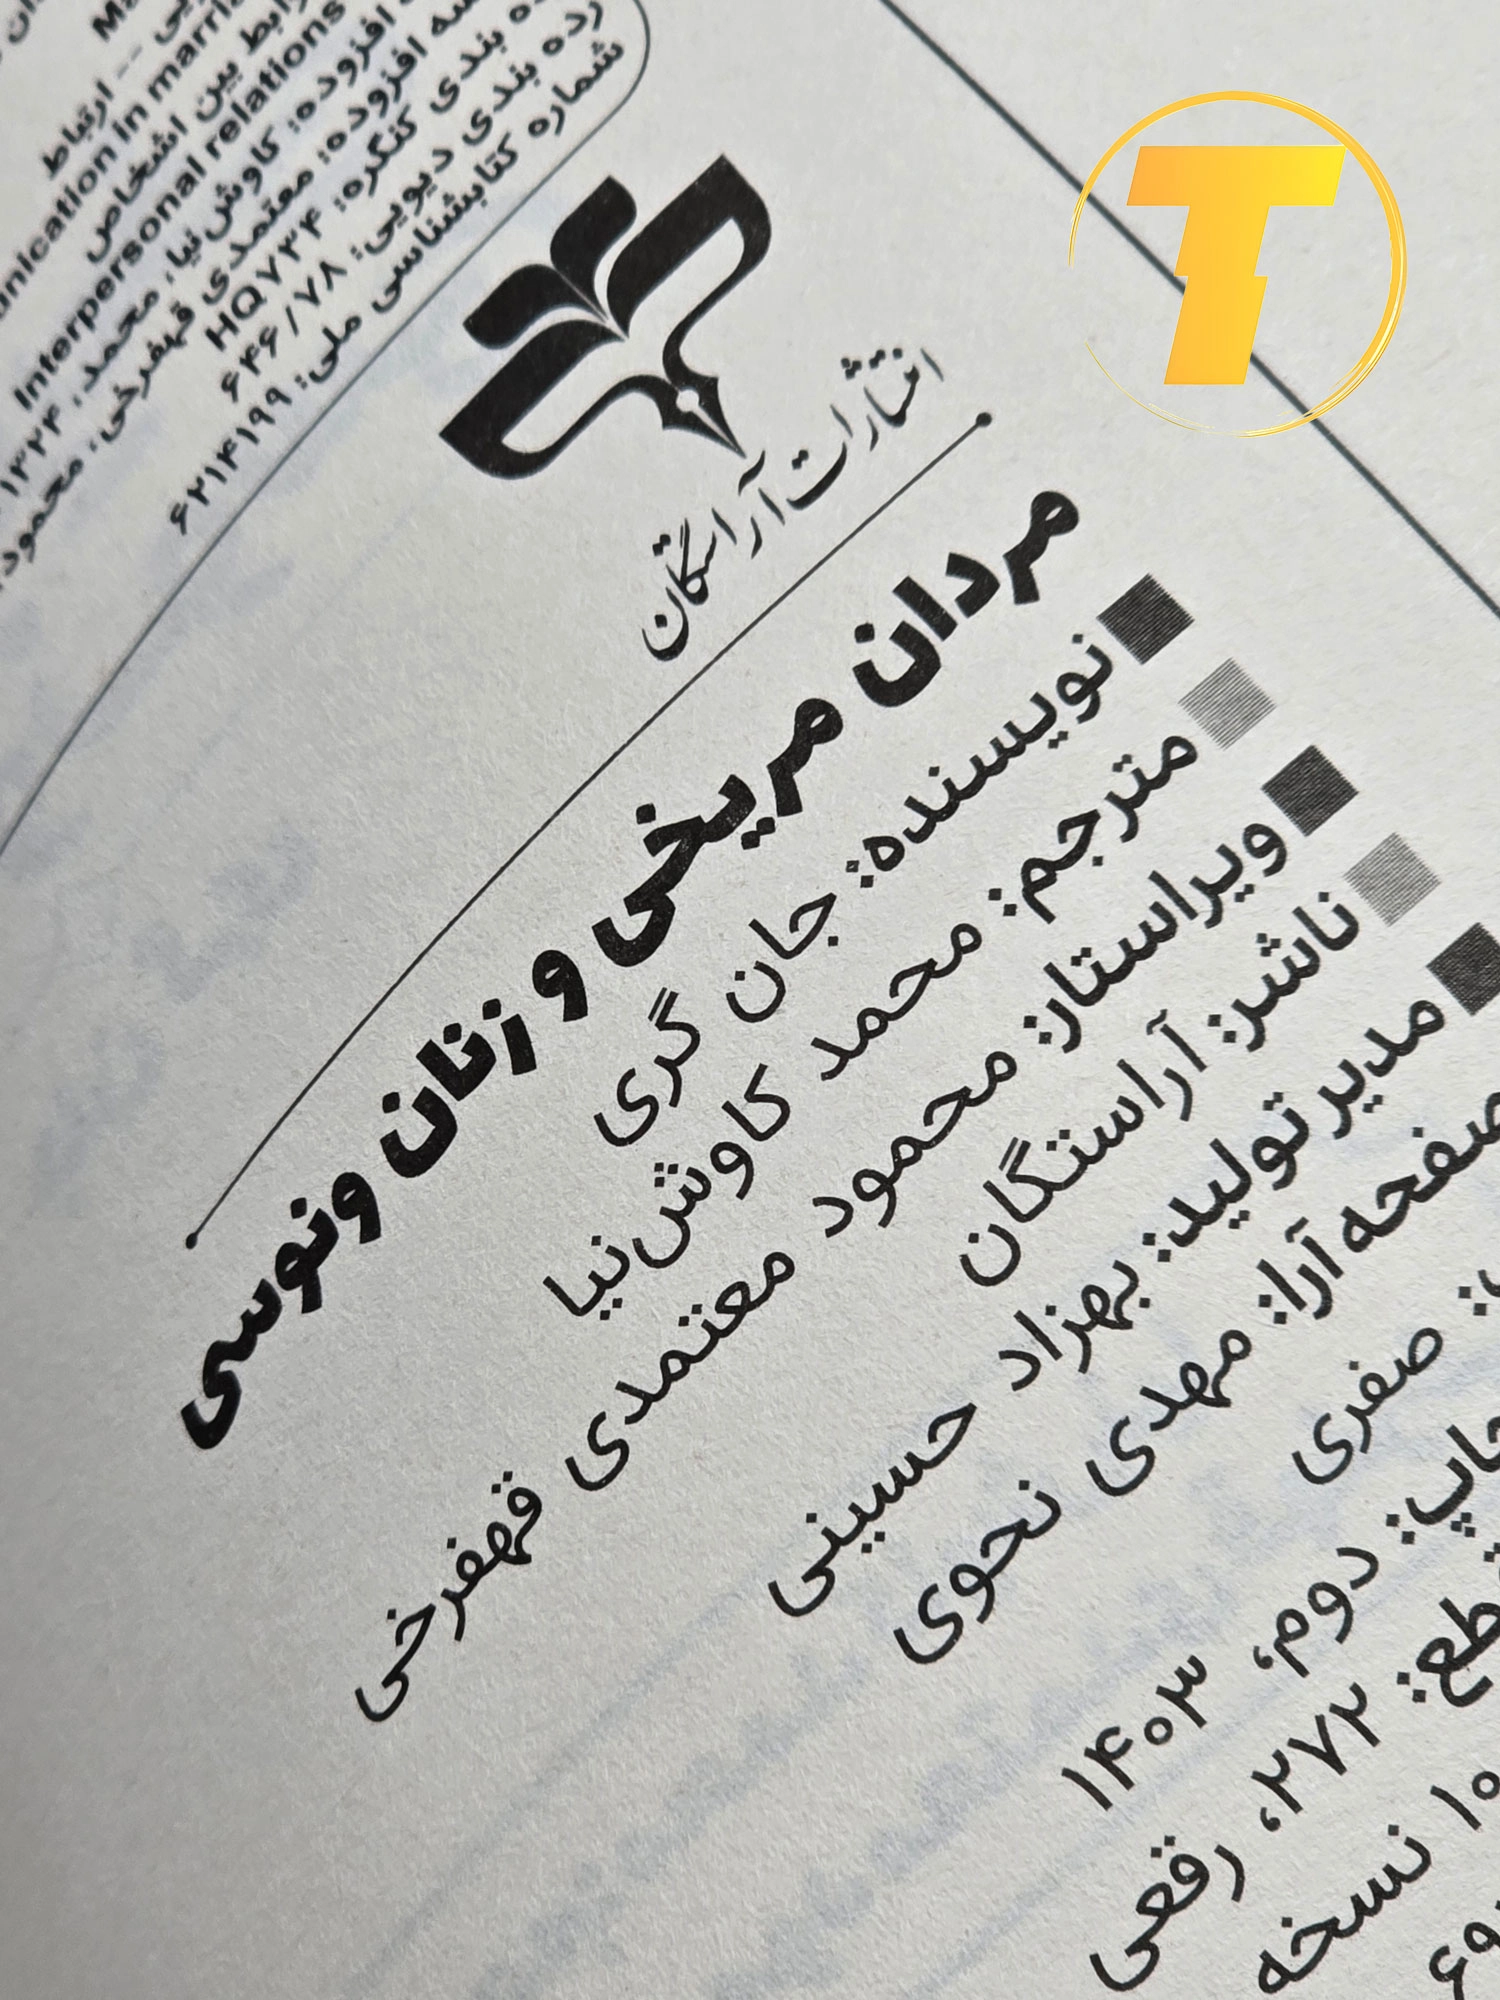 ارتباط
unication in marri
روابط بین اشخاص
Interpersonal relations
افزوده: کاوش‌نیا، محمد، ۱۳۲۴
افزوده: معتمدی قهفرخی، محمود،
رده بندی کنگره: HQ۷۳۴
رده بندی دیویی: ۶۴۶/۷۸
شماره کتابشناسی ملی: ۶۲۱۴۱۹۹
انتشارات آراستگان
مردان مریخی و زنان ونوسی
نویسنده: جان گری
مترجم: محمد کاوش‌نیا
ویراستار: محمود معتمدی قهفرخی
ناشر: آراستگان
مدیر تولید: بهزاد حسینی
صفحه آرا: مهدی نحوی
صفری
چاپ: دوم، ۱۴۰۳
قطع: ۲۷۲، رقعی
نسخه
T